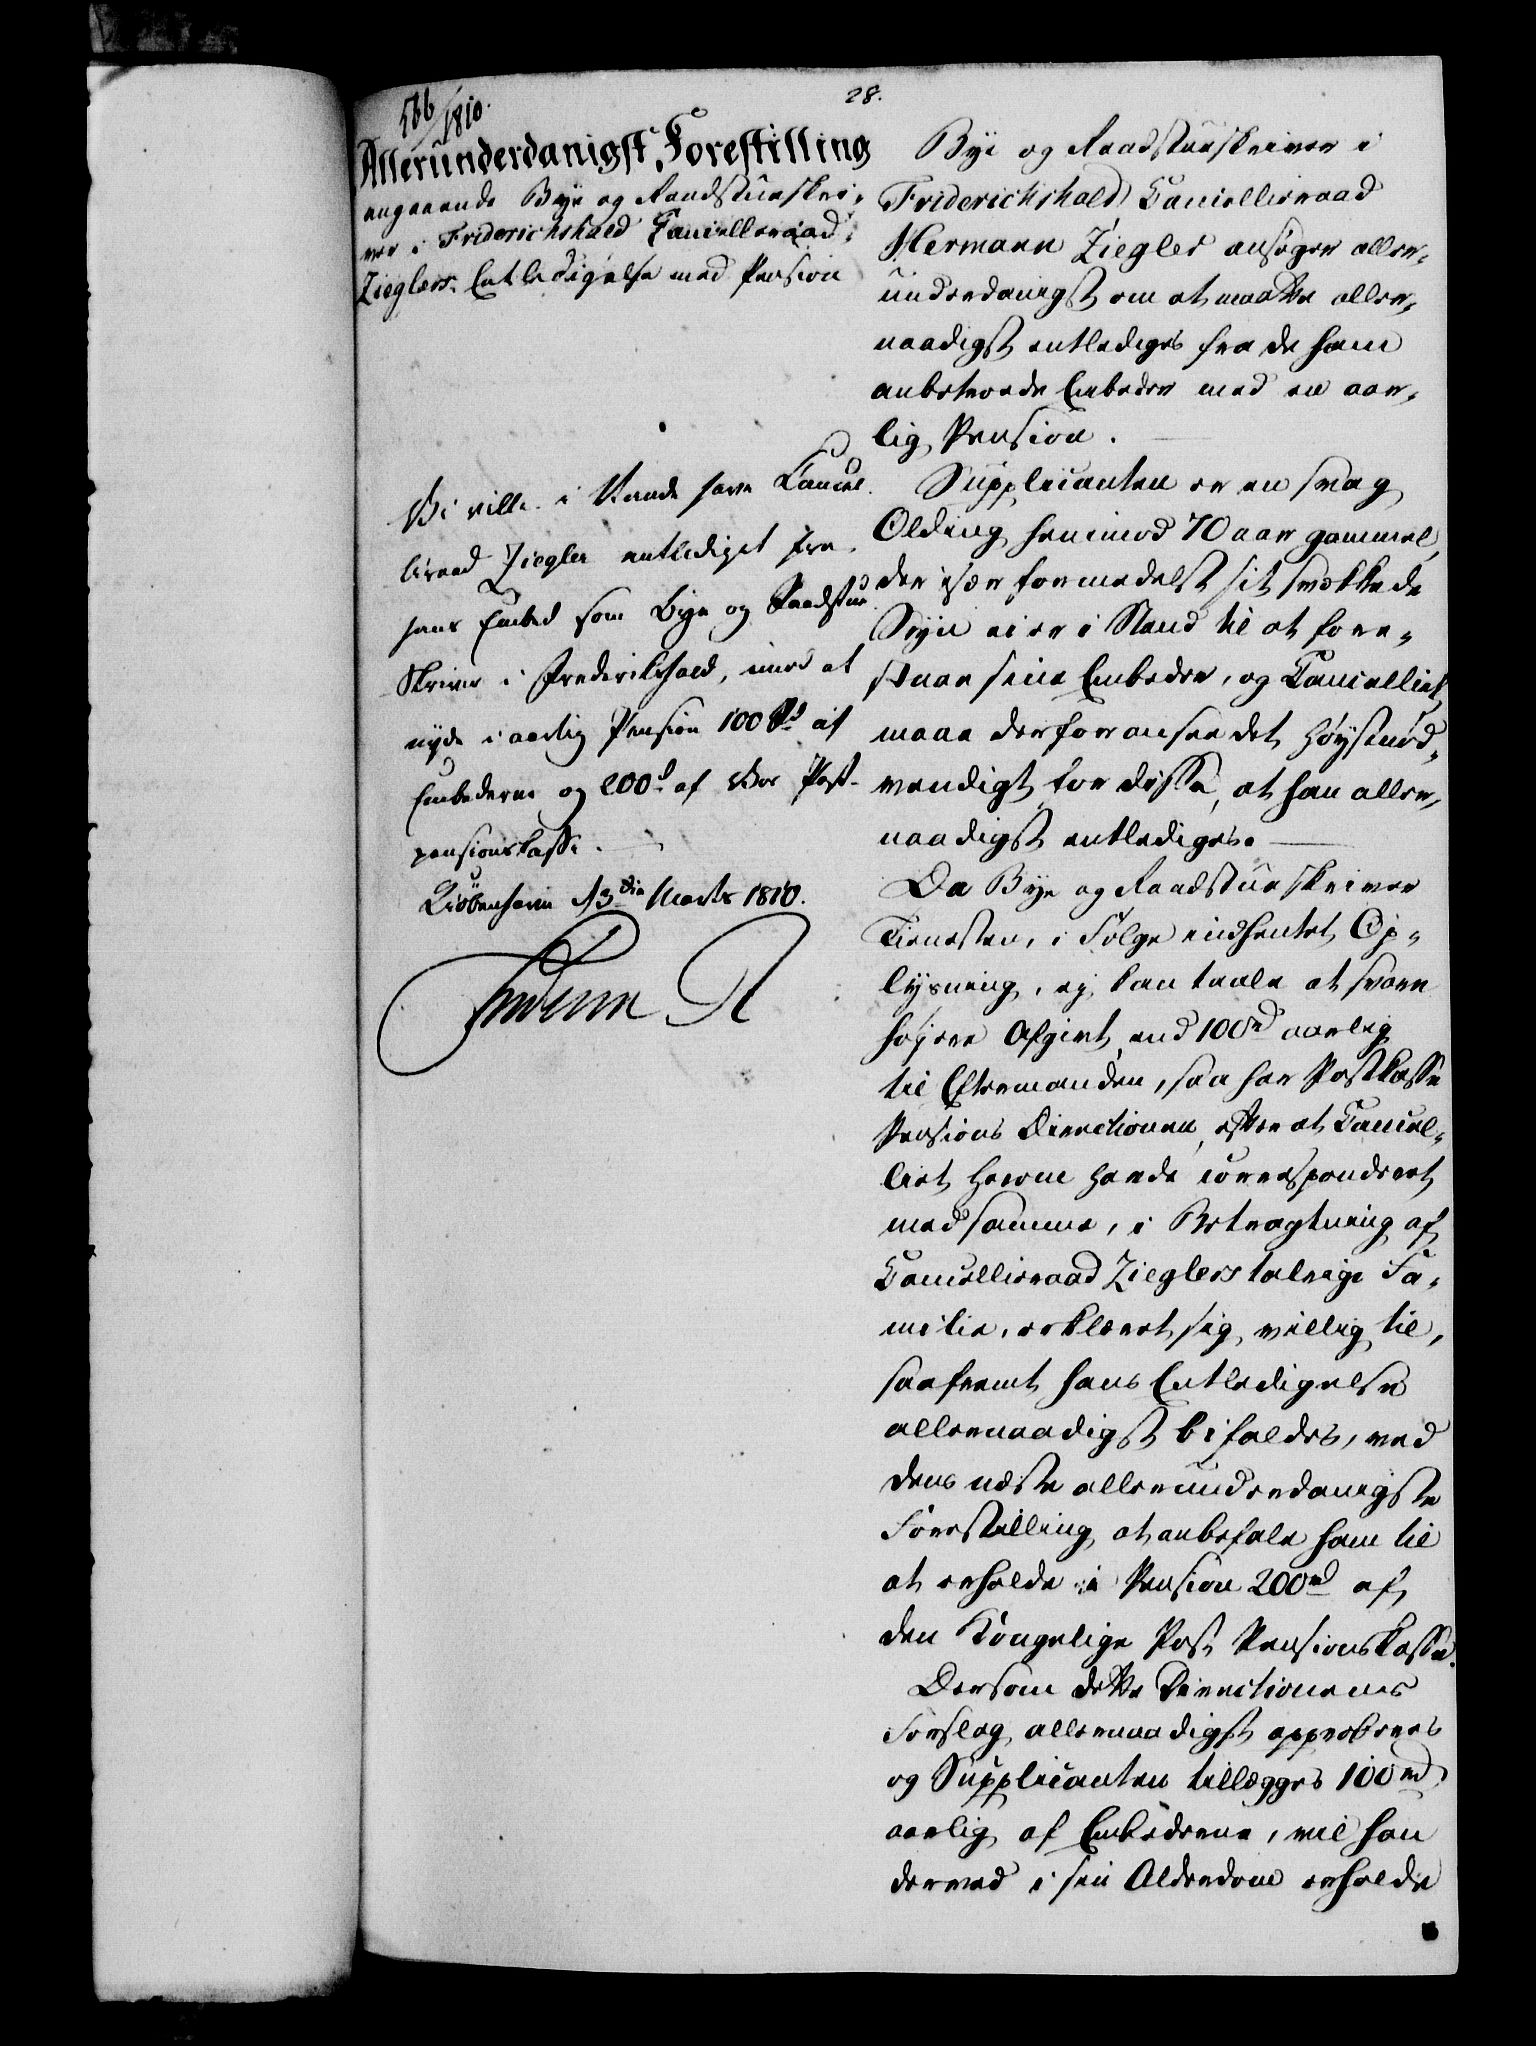 28.
566/1810.
Allerunderdanigst Forestilling
angaaende Bye og Raadstueskri-
ver i Friderichshald Cancelleraad
Zieglers Entledigelse med Pension
Vi ville i Naade have Cancel-
lieraad Ziegler entlediget fra
hans Embed som Bye og Raadstue
Skriver i Frederikshald, imod at
nyde i aarlig Pension 100 Rd af
Embederne og 200d af Vor Post-
pensionskasse.
Kiøbenhavn d 3die Marts 1810.
Frederik R
Bye og Raadstueskriver i
Friderichshald Cancellieraad
Hermann Ziegler ansøger aller-
underdanigst om at maatte aller-
naadigst entlediges fra de ham
anbetroede Embeder med en aar-
lig Pension.
Supplicanten er en svag
Olding henimod 70 aar gammel,
der især formedelst sit svækkede
Syn ei er i Stand til at fore-
staae sine Embeder, og Cancelliet
maae derfor ansee det høystnød-
vendigt for disse, at han aller-
naadigst entlediges.
Da Bye og Raadstueskriver
Tienesten, i Følge indhentet Op-
lysning, ej kan taale at svare
højere Afgivt end 100rd aarlig
til Eftermanden, saa har Postkasse
Pensions Directionen, efter at Cancel-
liet herom havde corresponderet
med samme, i Betragtning af
Cancellieraad Zieglers talrige Fa-
milie, erklæret sig villig til,
saafremt hans Entledigelse
allernaadigst bifaldes, ved
dens næste allerunderdanigste
Forestilling at anbefale ham til
at erholde i Pension 200rd af
den Kongelige Post Pensionskasse.
Dersom dette Directionens
Forslag allernaadigst approberes
og Supplicanten tillægges 100rd
aarlig af Embederne, vil han
derved i sin Alderdom erholde